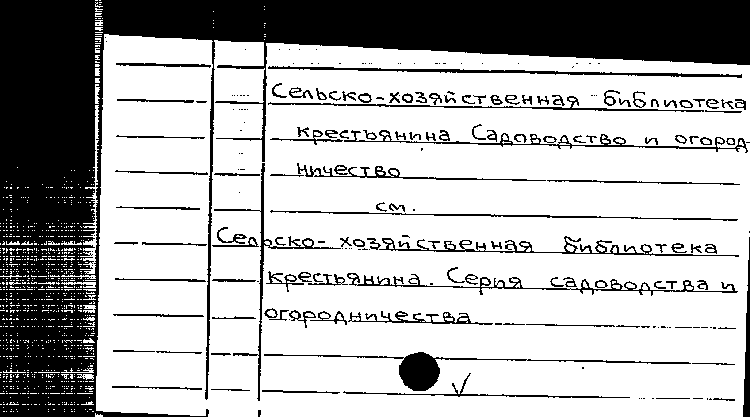 Сельско-хозяйственная библиотека
крестьянина. Садоводство и огород-
ничество
см.
Сельско-хозяйственная библиотека
крестьянина. Серия садоводства и
огородничества